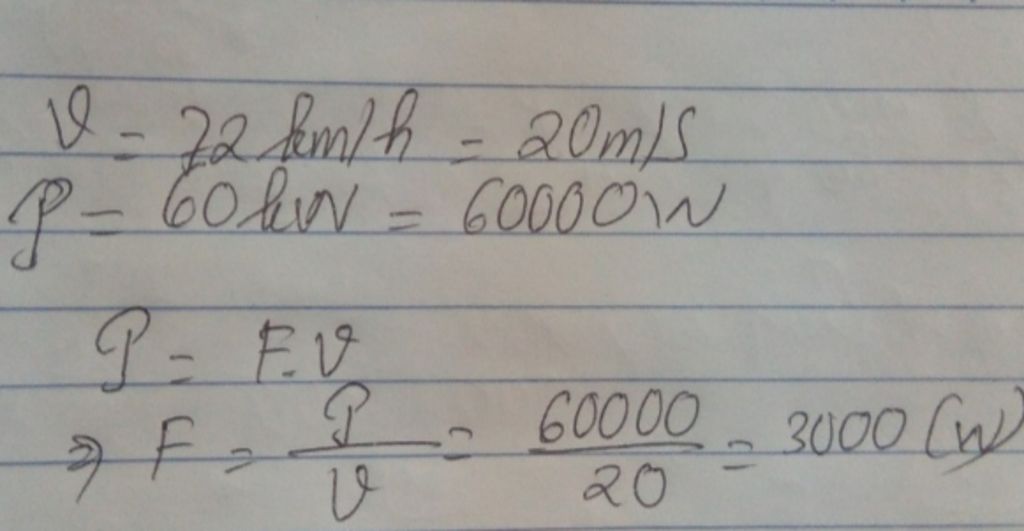 v = 72 km/h = 20m/s
P = 60 kW = 60000W
P = F.v
⇒ F = P/v = 60000/20 = 3000 (W)